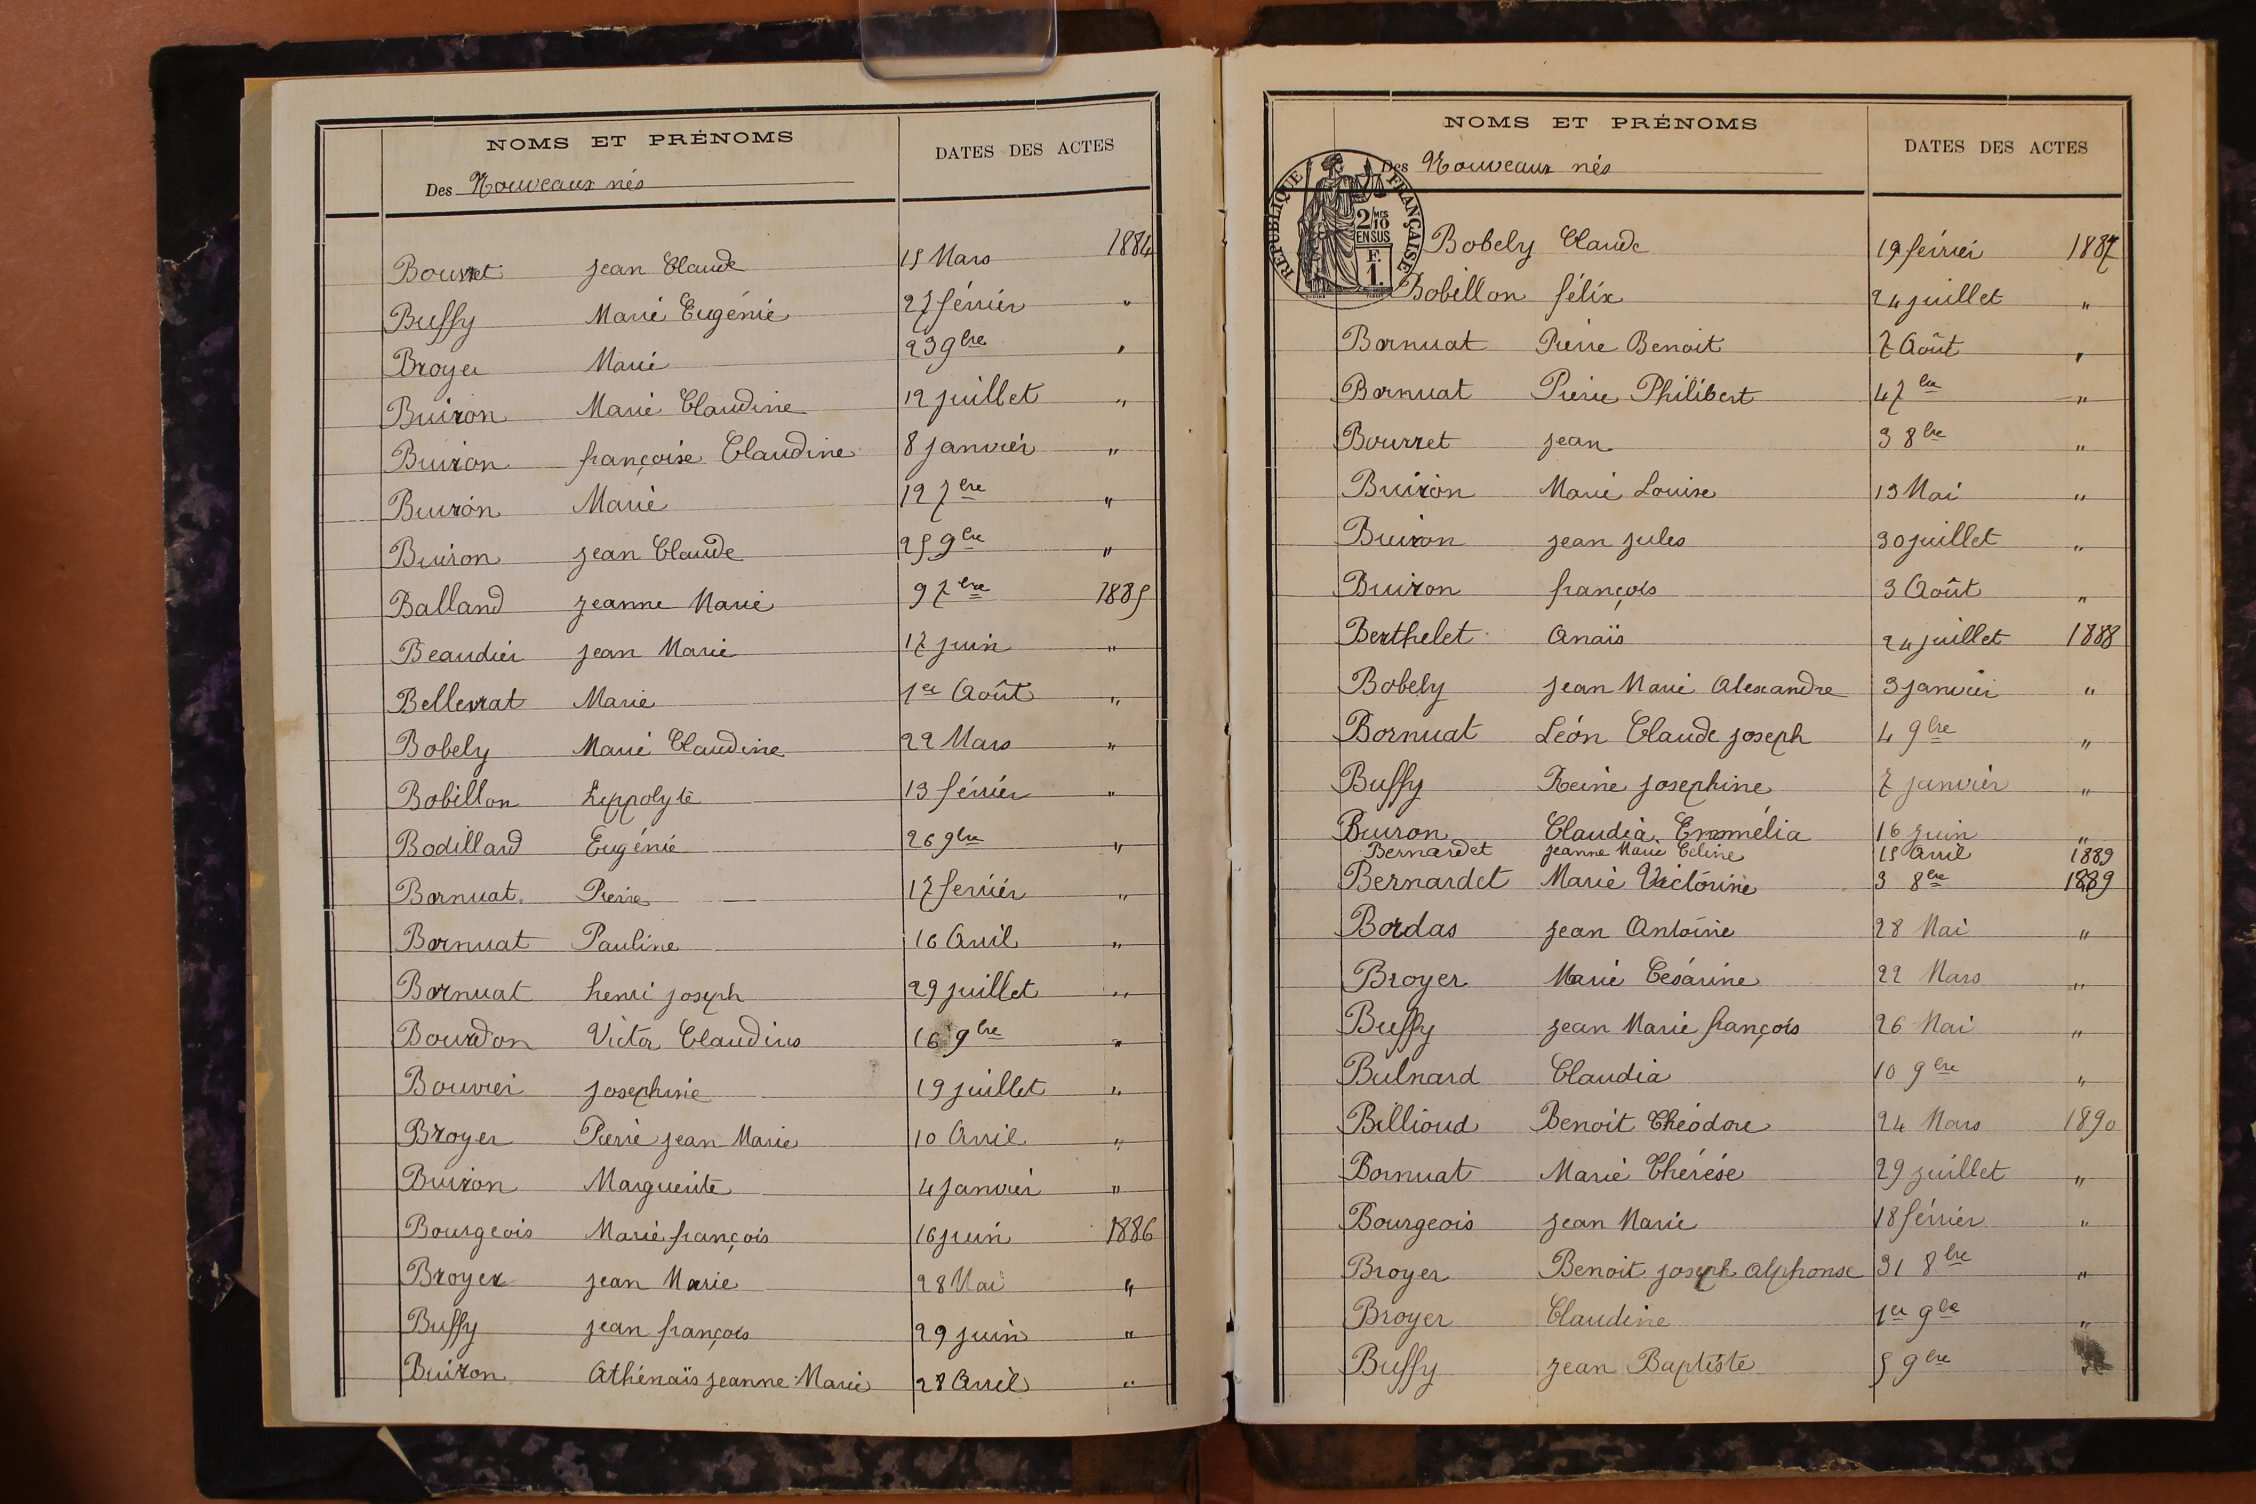 NOMS ET PRÉNOMS
DATES DES ACTES
Des Nouveaux nés
Bourret jean Claude 15 Mars 1884
Buffy Marie Eugénie 27 février "
Broyer Marie 23 9bre "
Buiron Marie Claudine 12 juillet "
Buiron françoise Claudine 8 janvier "
Buiron Marie 12 7bre "
Buiron jean Claude 25 9bre "
Balland jeanne Marie 9 7bre 1885
Beaudier jean Marie 17 juin "
Bellevrat Marie 1er Août "
Bobely Marie Claudine 22 Mars "
Bobillon hyppolyte 13 février "
Bodillard Eugénie 26 9bre "
Bornuat Pierre 17 fevrier "
Bornuat Pauline 16 Avril "
Bornuat henri joseph 29 juillet "
Bourdon Victor Claudius 16 9bre "
Bouvier josephine 19 juillet "
Broyer Pierre jean Marie 10 Avril "
Buiron Marguerite 4 janvier "
Bourgeois Marie françois 16 juin 1886
Broyer jean Marie 28 Mai "
Buffy jean françois 29 juin "
Buiron Athénaïs jeanne Marie 28 Avril "
NOMS ET PRÉNOMS
DATES DES ACTES
Des Nouveaux nés
RÉPUBLIQUE FRANÇAISE
2/10 MES
EN SUS
F.
1.
Bobely Claude 19 février 1887
Bobillon félix 24 juillet "
Bornuat Pierre Benoit 7 Août "
Bornuat Pierre Philibert 4 7bre "
Bourret jean 3 8bre "
Buiron Marie Louise 13 Mai "
Buiron jean jules 30 juillet "
Buiron françois 3 Août "
Berthelet Anaïs 24 juillet 1888
Bobely jean Marie Alexandre 3 janvier "
Bornuat Léon Claude joseph 4 9bre "
Buffy Reine josephine 7 janvier "
Buiron Claudia Emmélia 16 juin "
Bernardet jeanne Marie Céline 15 Avril 1889
Bernardet Marie Victorine 3 8bre 1889
Bordas jean Antoine 28 Mai "
Broyer Marie Césarine 22 Mars "
Buffy jean Marie françois 26 Mai "
Bulnard Claudia 10 9bre "
Billioud Benoit Théodore 24 Mars 1890
Bornuat Marie Thérése 29 juillet "
Bourgeois jean Marie 18 février "
Broyer Benoit joseph alphonse 31 8bre "
Broyer Claudine 1er 9bre "
Buffy jean Baptiste 5 9bre "